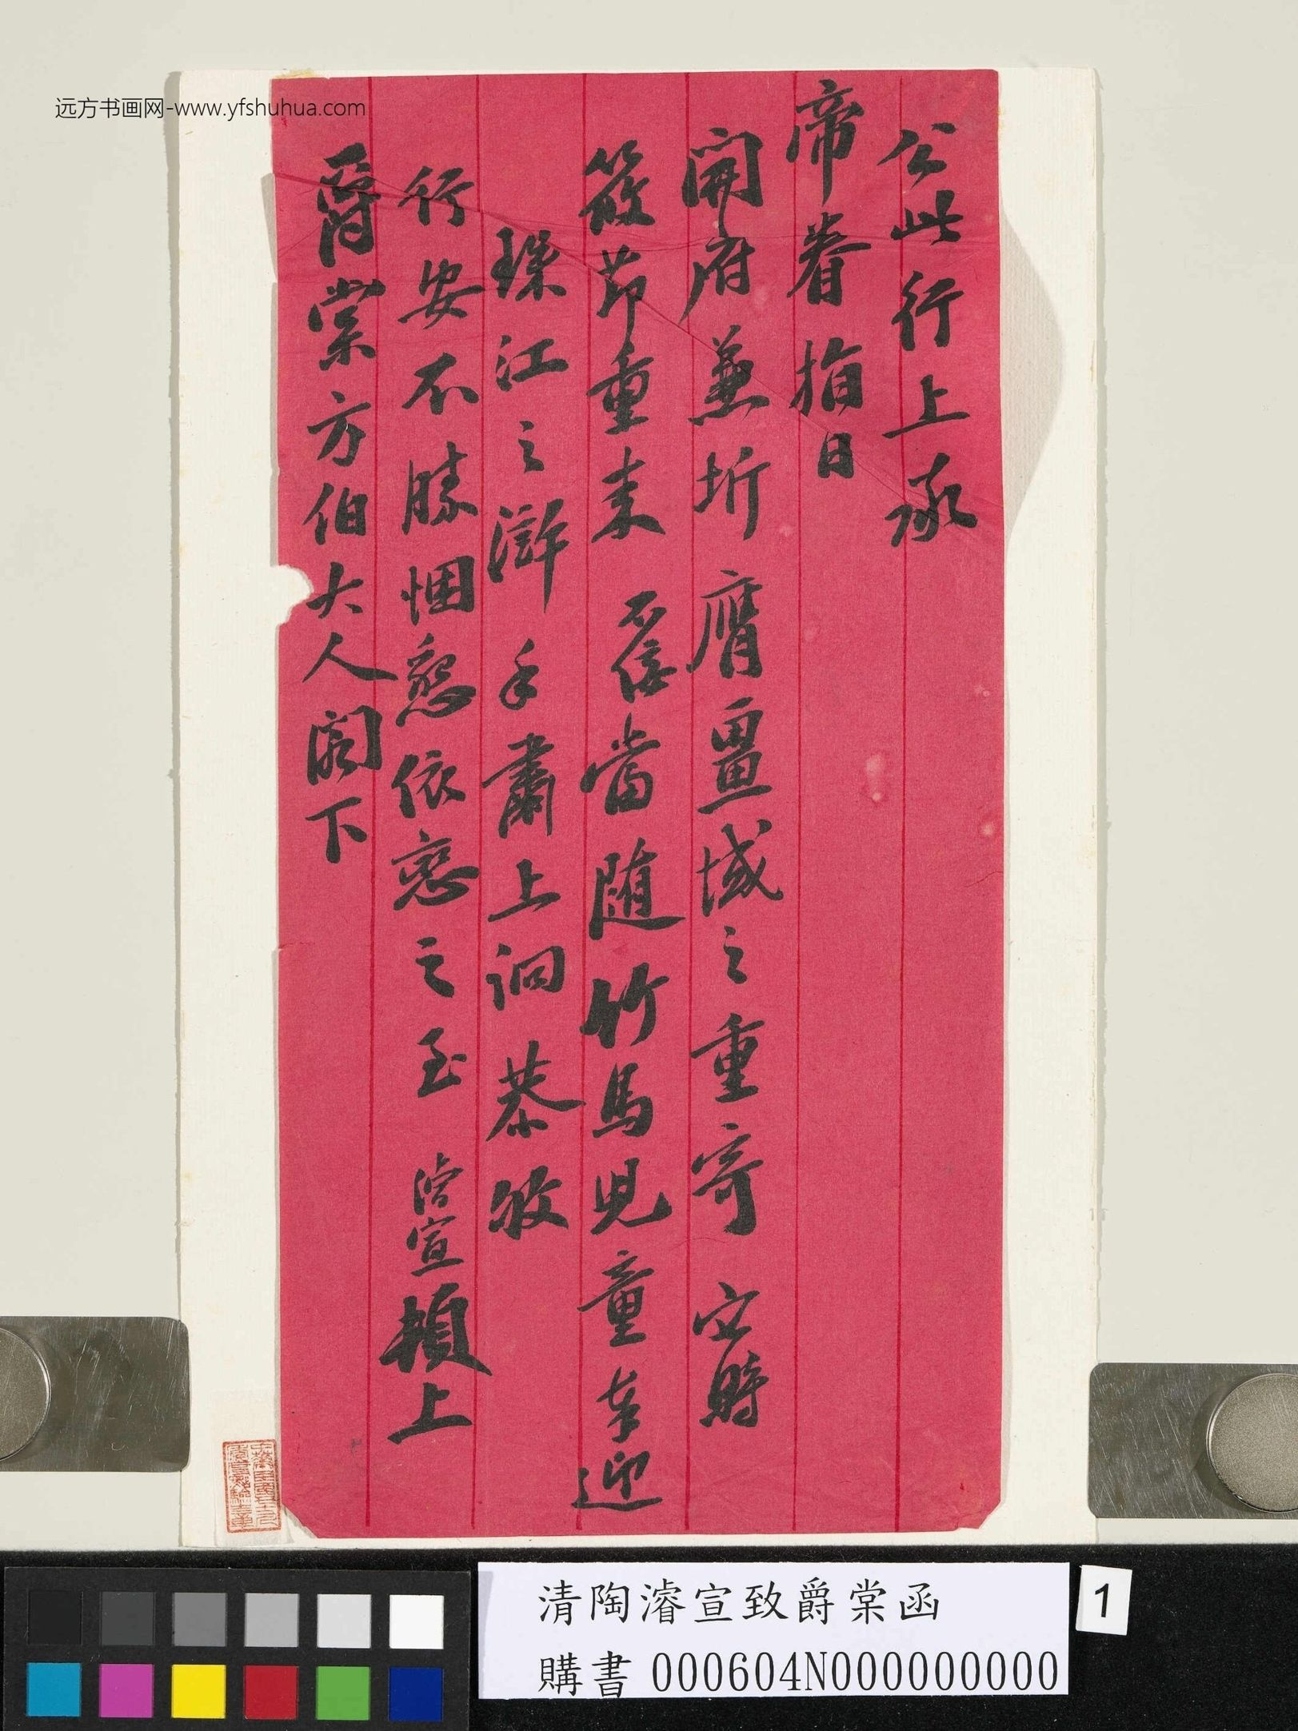 远方书画网-www.yfshuhua.com
公此行上承
帝眷指日
開府兼圻膺畺域之重寄 定時
筱節重来 不佞當随竹馬兒童幸迎
珠江之滸 手肅上詗恭敂
行安不勝悃愨依戀之至 濬宣頓上
爵棠方伯大人閣下
清陶濬宣致爵棠函
購書 000604N000000000
1